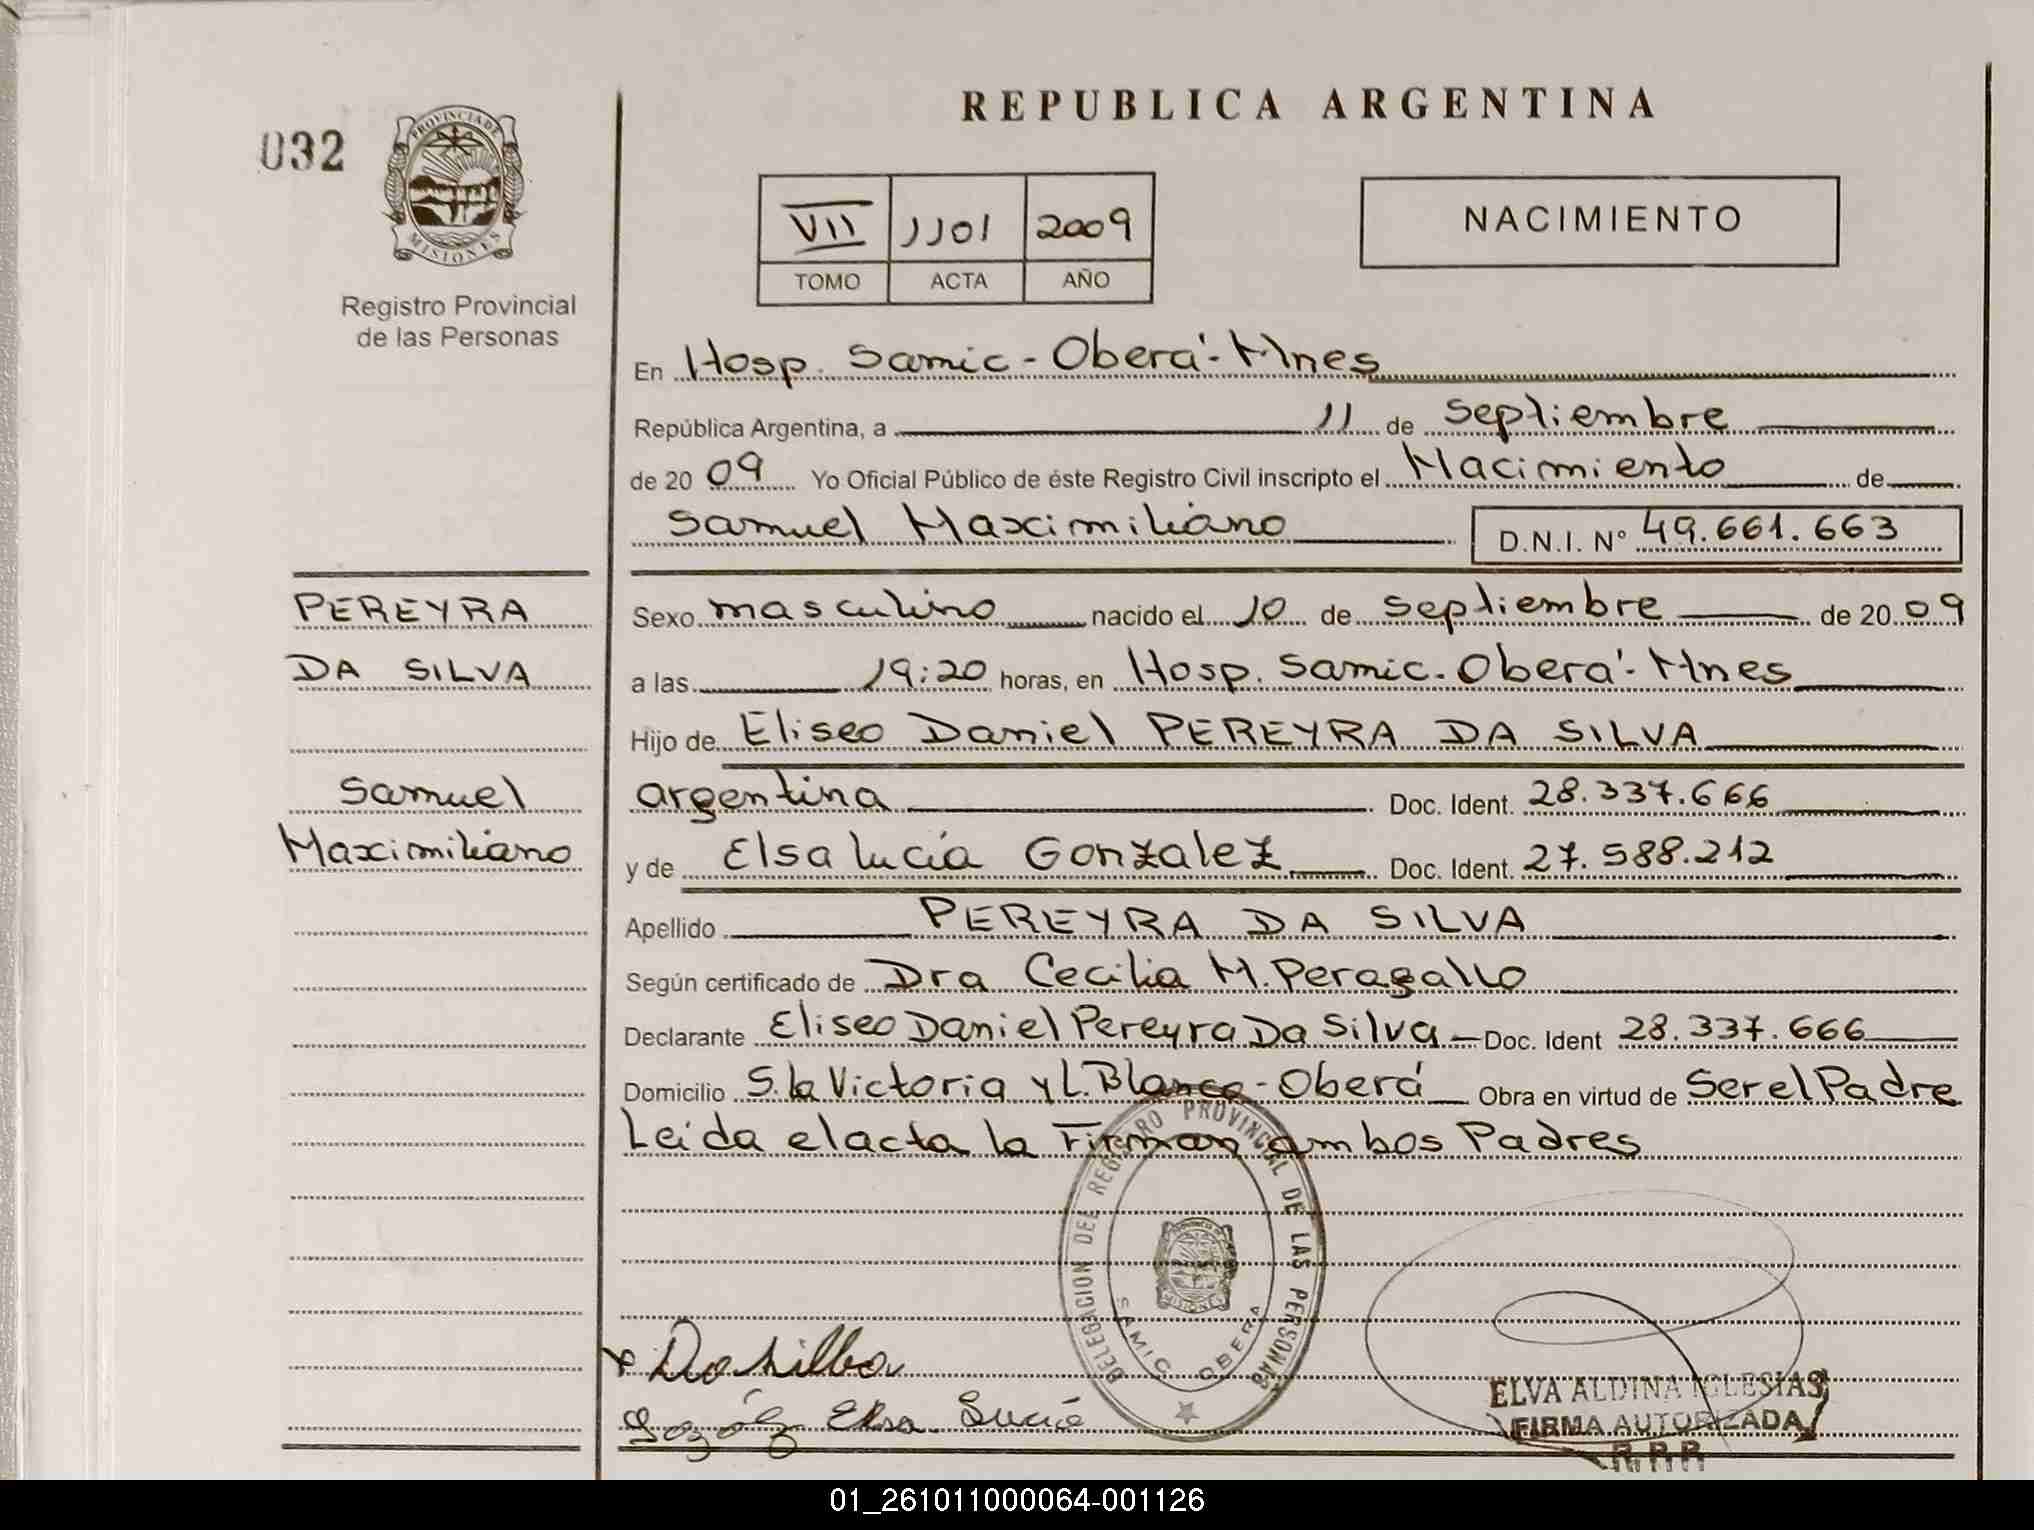 REPUBLICA ARGENTINA
032
PROVINCIA DE
MISIONES
Registro Provincial
de las Personas
VII 1101 2009
TOMO ACTA AÑO
NACIMIENTO
En Hosp. Samic - Oberá - Mnes
República Argentina, a 11 de Septiembre
de 20 09 Yo Oficial Público de éste Registro Civil inscripto el Nacimiento de
Samuel Maximiliano D.N.I. Nº 49.661.663
PEREYRA
DA SILVA
Samuel
Maximiliano
Sexo masculino nacido el 10 de Septiembre de 20 09
a las 19:20 horas, en Hosp. Samic - Oberá - Mnes
Hijo de Eliseo Daniel PEREYRA DA SILVA
argentina Doc. Ident. 28.337.666
y de Elsa lucía Gonzalez Doc. Ident. 27.588.212
Apellido PEREYRA DA SILVA
Según certificado de Dra Cecilia M. Peragallo
Declarante Eliseo Daniel Pereyra Da Silva - Doc. Ident 28.337.666
Domicilio S. la Victoria y L. Blanco - Oberá Obra en virtud de Ser el Padre
Leída el acta la Firman ambos Padres
DELEGACION DEL REGISTRO PROVINCIAL DE LAS PERSONAS
MISIONES
SAMIC OBERA
Elsa Lucía
ELVA ALDINA IGLESIAS
FIRMA AUTORIZADA
R.P.P.
01_261011000064-001126